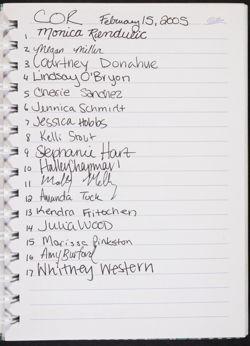 COR February 15, 2005
1 Monica
2 Megan Miller
3 Courtney Donahue
4 Lindsay O'Bryon
5 Cherie Sanchez
6 Jennica Schmidt
7 Jessica Hobbs
8 Kelli Stout
9 Stephanie Hart
10 Hailey Chapman!
11 Molly
12 Amanda Tuck
13 Kendra Fritschen
14 Julia Wood
15 Marissa Pinkston
16 Amy Burton
17 Whitney Western